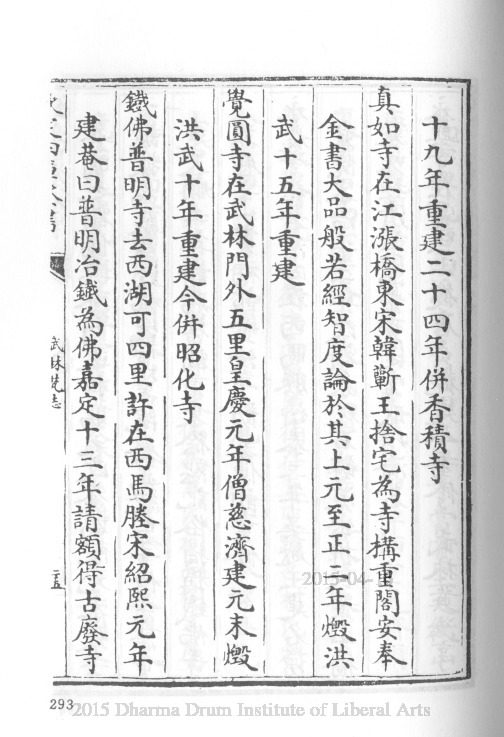 十九年重建二十四年併香積寺
真如寺在江漲橋東宋韓蘄王捨宅為寺構重閣安奉
金書大品般若經智度論於其上元至正二年燬洪
武十五年重建
覺圓寺在武林門外五里皇慶元年僧慈濟建元末燬
洪武十年重建今併昭化寺
鐵佛普明寺去西湖可四里許在西馬塍宋紹熙元年
建菴曰普明冶鐵為佛嘉定十三年請額得古廢寺
武林梵志
293
2015 Dharma Drum Institute of Liberal Arts
2015-04-